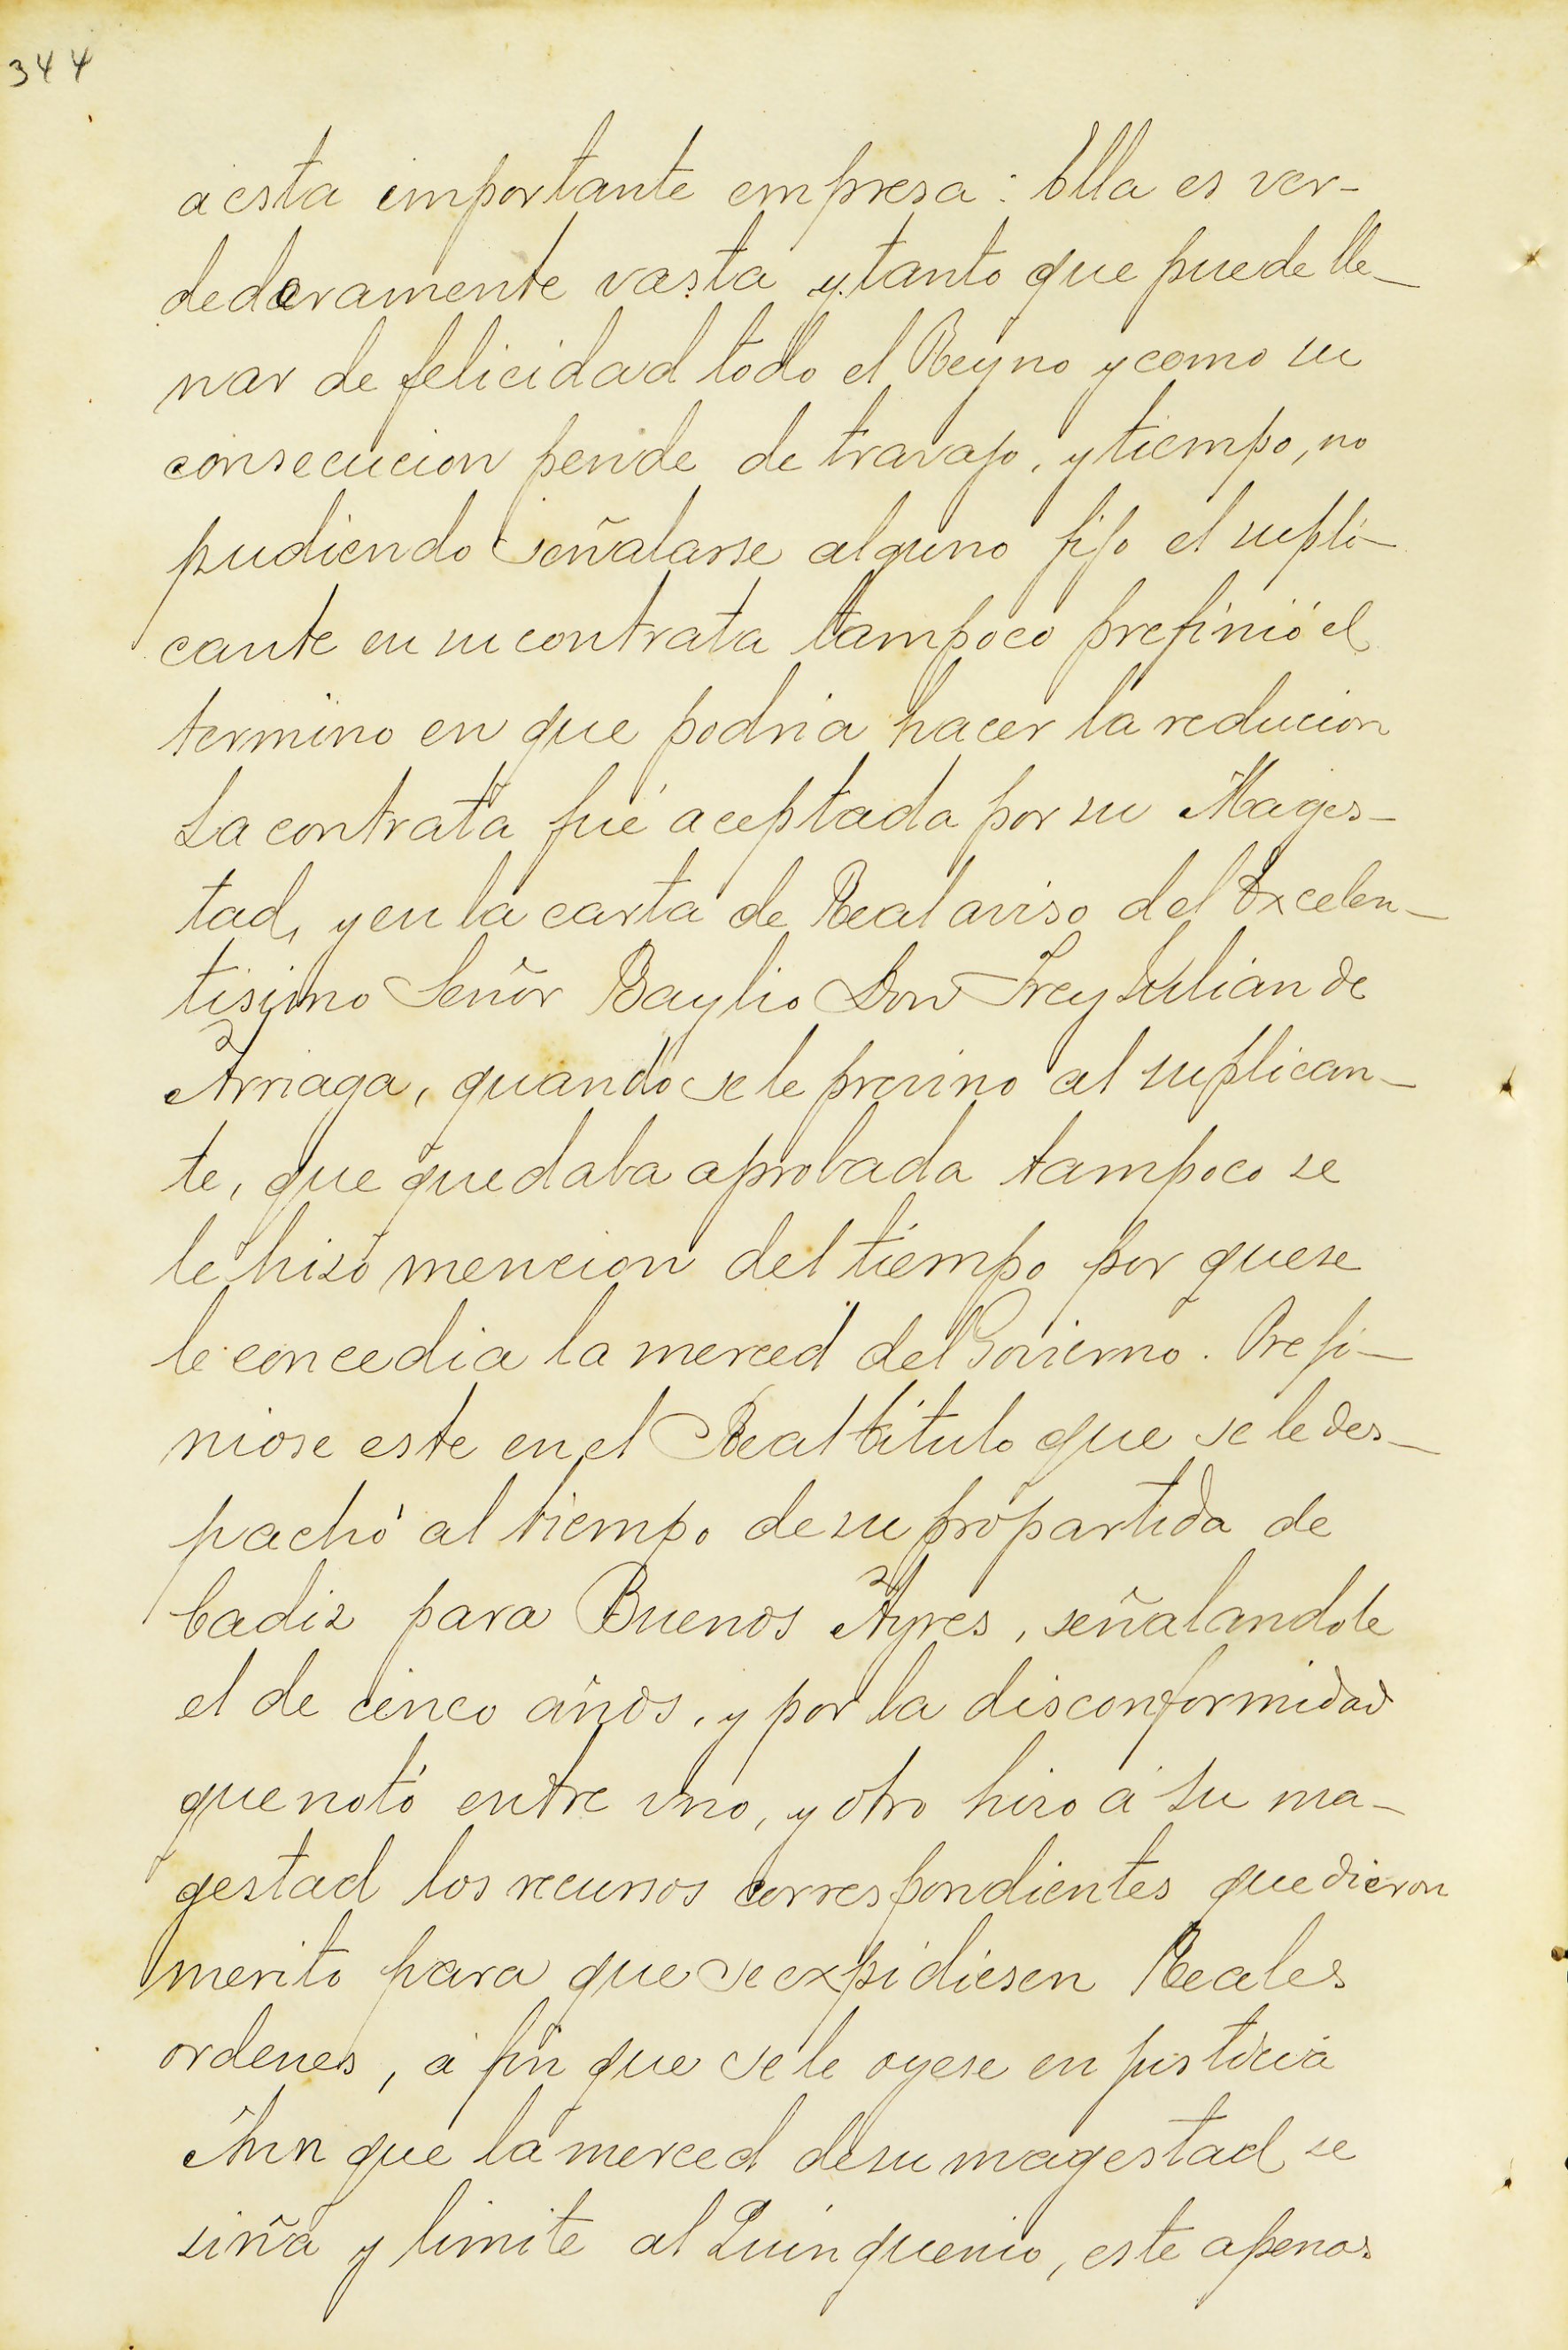 344
a esta importante empresa: Ella es ver-
dedaramente vasta y tanto que puede lle-
nar de felicidad todo el Reyno y como su
consecucion pende de travajo, y tiempo, no
pudiendo señalarse alguno fijo el supli-
cante en su contrata tampoco prefinió el
termino en que podria hacer la reducion
La contrata fué aceptada por su Mages-
tad, y en la carta de Real aviso del Excelen-
tisimo Señor Baylio Don Frey Julian de
Arriaga, quando se le previno al suplican-
te, que quedaba aprobada tampoco se
le hizo mencion del tiempo por que se
le concedia la merced del Govierno. Prefi-
niose este en el Real titulo que se le des-
pachó al tiempo de su propartida de
Cadiz para Buenos Ayres, señalandole
el de cinco años, y por la disconformidad
que notó entre uno, y otro hizo á Su ma-
gestad los recursos correspondientes que dieron
merito para que se expidiesen Reales
ordenes, á fin que se le oyese en justicia
Aun que la merced de su magestad se
siña y limite al Quinquenio, este apenas